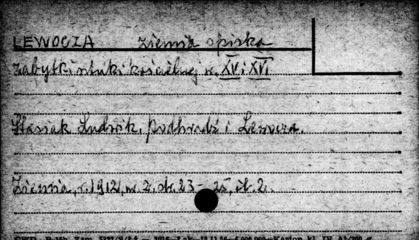 LEWOCZA ziemia spiska
Zabytki sztuki kościelnej w. XV i XVI
Stasiak Ludwik, Podhradź i Lewocza.
Ziemia, r. 1912, nr 2, st. 23-25, il. 2.